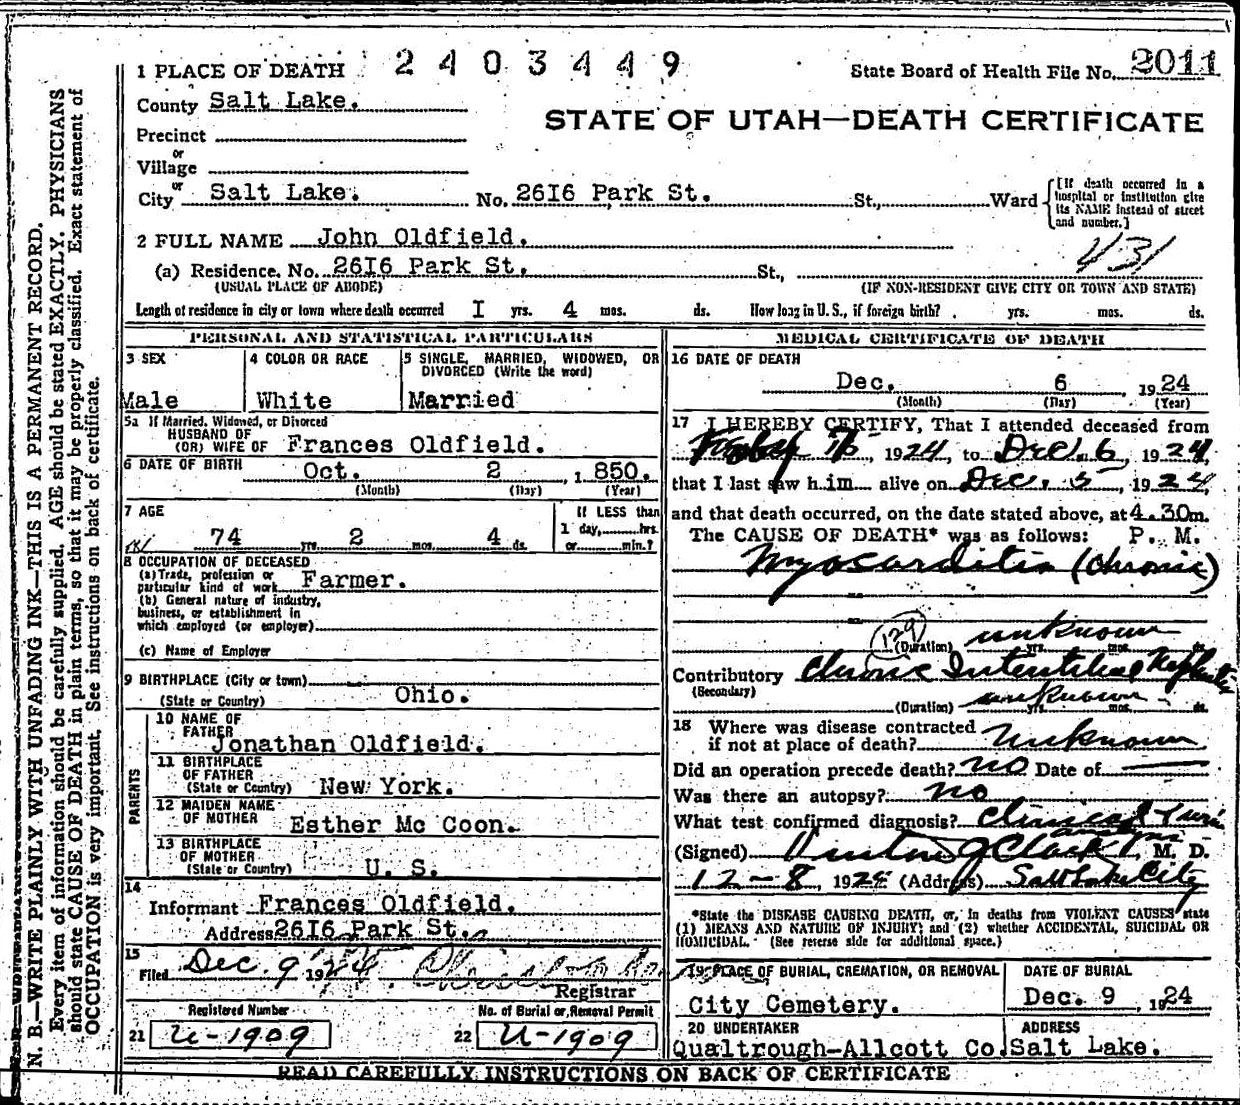 1 PLACE OF DEATH 2 4 0 3 4 4 9 State Board of Health File No. 2011
County Salt Lake.
STATE OF UTAH—DEATH CERTIFICATE
Precinct
or
Village
or
City Salt Lake. No. 26I6 Park St. St., Ward [If death occurred in a hospital or institution give its NAME instead of street and number.]
2 FULL NAME John Oldfield.
431
(a) Residence. No. 26I6 Park St. St.,
(USUAL PLACE OF ABODE) (IF NON-RESIDENT GIVE CITY OR TOWN AND STATE)
Length of residence in city or town where death occurred I yrs. 4 mos. ds. How long in U. S., if foreign birth? yrs. mos. ds.
PERSONAL AND STATISTICAL PARTICULARS
3 SEX 4 COLOR OR RACE 5 SINGLE, MARRIED, WIDOWED, OR
DIVORCED (Write the word)
Male White Married
5a If Married, Widowed, or Divorced
HUSBAND OF
(OR) WIFE OF Frances Oldfield.
6 DATE OF BIRTH Oct. 2 , 1 850.
(Month) (Day) (Year)
7 AGE If LESS than
74 yrs. 2 mos. 4 ds. 1 day, hrs.
or min.?
8 OCCUPATION OF DECEASED
(a) Trade, profession or
particular kind of work Farmer.
(b) General nature of industry,
business, or establishment in
which employed (or employer)
(c) Name of Employer
9 BIRTHPLACE (City or town)
(State or Country) Ohio.
PARENTS
10 NAME OF
FATHER
Jonathan Oldfield.
11 BIRTHPLACE
OF FATHER
(State or Country) New York.
12 MAIDEN NAME
OF MOTHER Esther Mc Coon.
13 BIRTHPLACE
OF MOTHER
(State or Country) U. S.
14
Informant Frances Oldfield.
Address 26I6 Park St.
15
Filed Dec. 9 1924
Registrar
Registered Number No. of Burial or Removal Permit
21 U-1909 22 U-1909
MEDICAL CERTIFICATE OF DEATH
16 DATE OF DEATH
Dec. 6 , 1924
(Month) (Day) (Year)
17 I HEREBY CERTIFY, That I attended deceased from
, 1924, to Dec. 6, 1924,
that I last saw him alive on Dec. 5, 1924,
and that death occurred, on the date stated above, at 4.30m.
The CAUSE OF DEATH* was as follows: P. M.
Myocarditis (chronic)
129
(Duration) unknown yrs. mos. ds.
Contributory Chronic Interstitial Nephritis
(Secondary)
(Duration) unknown yrs. mos. ds.
18 Where was disease contracted
if not at place of death? Unknown
Did an operation precede death? no Date of
Was there an autopsy? no
What test confirmed diagnosis? Clinical
(Signed) Clark, M. D.
12-8, 1924 (Address) Salt Lake City
*State the DISEASE CAUSING DEATH, or, in deaths from VIOLENT CAUSES state
(1) MEANS AND NATURE OF INJURY; and (2) whether ACCIDENTAL, SUICIDAL OR
HOMICIDAL. (See reverse side for additional space.)
19 PLACE OF BURIAL, CREMATION, OR REMOVAL DATE OF BURIAL
City Cemetery. Dec. 9 , 1924
20 UNDERTAKER ADDRESS
Qualtrough-Allcott Co. Salt Lake.
READ CAREFULLY INSTRUCTIONS ON BACK OF CERTIFICATE
N. B.—WRITE PLAINLY WITH UNFADING INK—THIS IS A PERMANENT RECORD.
Every item of information should be carefully supplied. AGE should be stated EXACTLY. PHYSICIANS
should state CAUSE OF DEATH in plain terms, so that it may be properly classified. Exact statement of
OCCUPATION is very important. See instructions on back of certificate.